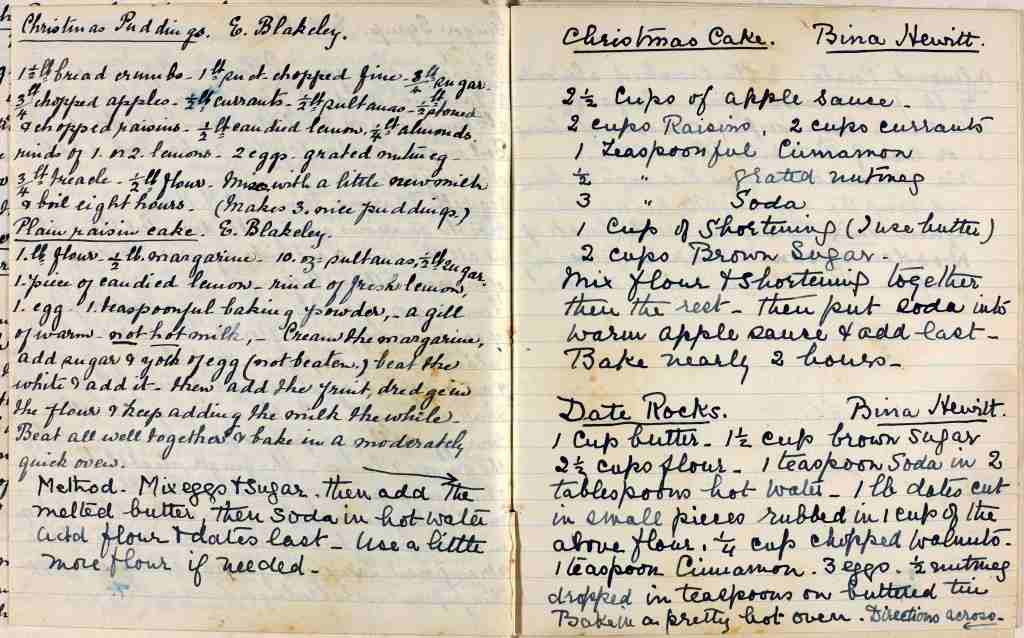 Christmas Puddings. E. Blakeley.
1½ lb bread crumbs - 1 lb suet chopped fine - ¾ lb sugar.
¾ lb chopped apples - ½ lb currants - ½ lb sultanas - ½ lb stoned
& chopped raisins - ½ lb candied lemon, ¼ lb almonds.
rinds of 1. or 2. lemons - 2 eggs - grated nutmeg -
¾ lb treacle - ½ lb flour - Mix with a little new milk
& boil eight hours. (Makes 3. nice puddings.)
Plain raisin cake. E. Blakeley.
1. lb flour - ½ lb margarine - 10. oz = sultanas, ½ lb sugar.
1. piece of candied lemon - rind of fresh lemon,
1. egg. 1. teaspoonful baking powder, - a gill
of warm - not hot milk, - Cream the margarine,
add sugar & yolk of egg (not beaten.) beat the
white & add it - then add the fruit, dredge in
the flour & keep adding the milk the while -
Beat all well together & bake in a moderately
quick oven.
Method - Mix eggs & sugar. then add the
melted butter then soda in hot water
add flour & dates last - Use a little
more flour if needed -
Christmas Cake. Bina Hewitt.
2½ cups of apple sauce -
2 cups Raisins, 2 cups currants
1 Teaspoonful Cinnamon
½ " grated nutmeg
3 " Soda
1 Cup of Shortening (I use butter)
2 cups Brown Sugar -
Mix flour & shortening together
then the rest - then put soda into
warm apple sauce & add last -
Bake nearly 2 hours -
Date Rocks. Bina Hewitt.
1 Cup butter - 1½ cup brown sugar
2½ cups flour - 1 teaspoon Soda in 2
tablespoons hot water - 1 lb dates cut
in small pieces rubbed in 1 cup of the
above flour. ¼ cup chopped walnuts -
1 teaspoon Cinnamon. 3 eggs. ½ nutmeg
dropped in teaspoons on buttered tin
Bake in a pretty hot oven. Directions across -